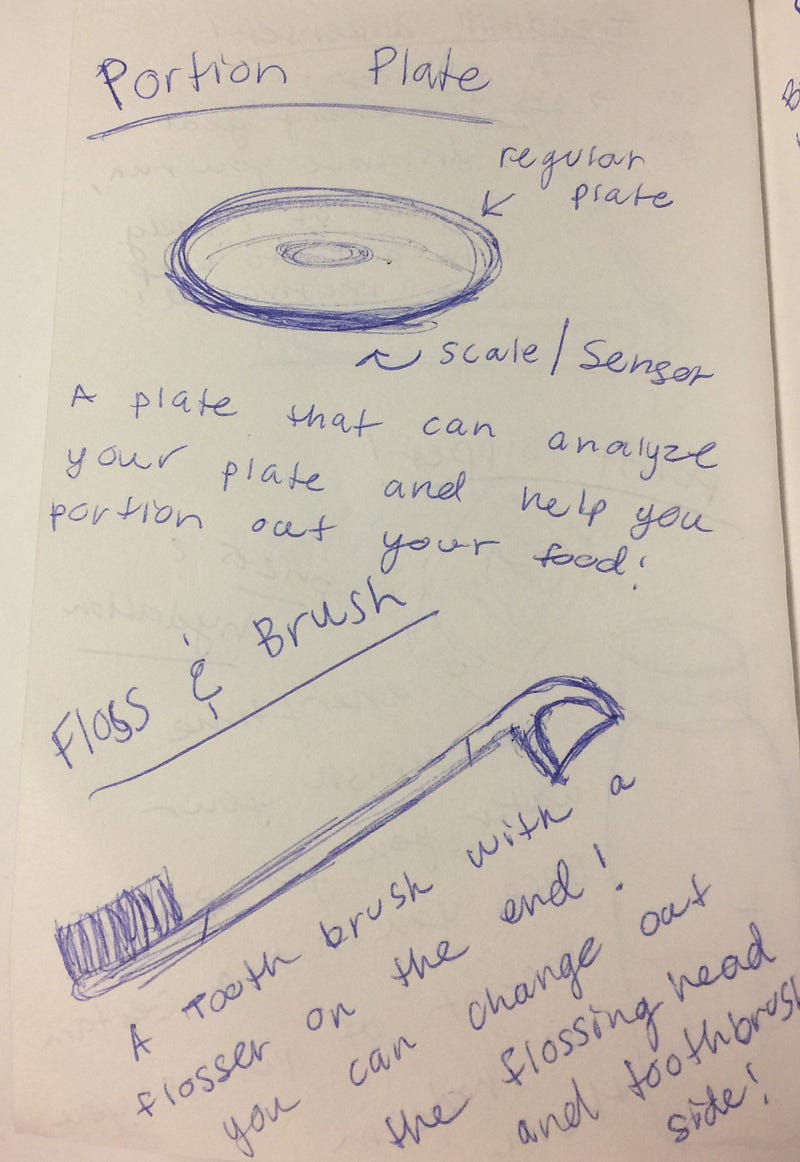 Portion Plate
regular
plate
scale/Sensor
A plate that can analyze
your plate and help you
portion out your food!
Floss & Brush
A Tooth brush with a
flosser on the end!
you can change out
the flossing head
and toothbrush
side!